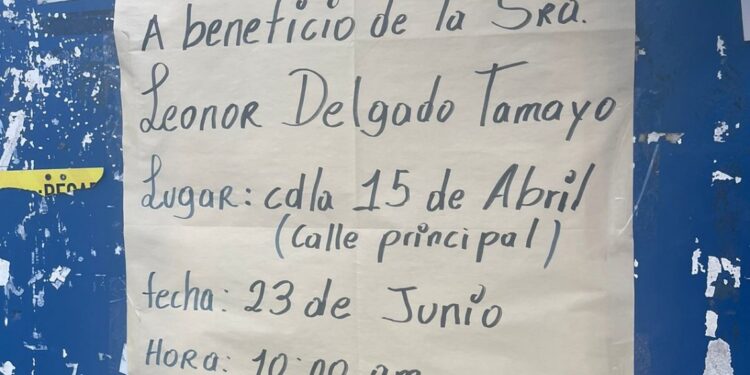 A beneficio de la Sra.
Leonor Delgado Tamayo
Lugar: cdla 15 de Abril
(Calle principal)
fecha: 23 de Junio
Hora: 10:00 am